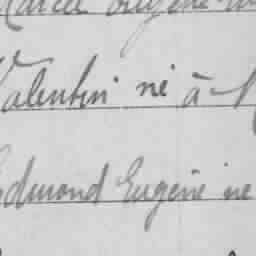 Marcel Eugène
Valentin né à
Edmond Eugène né